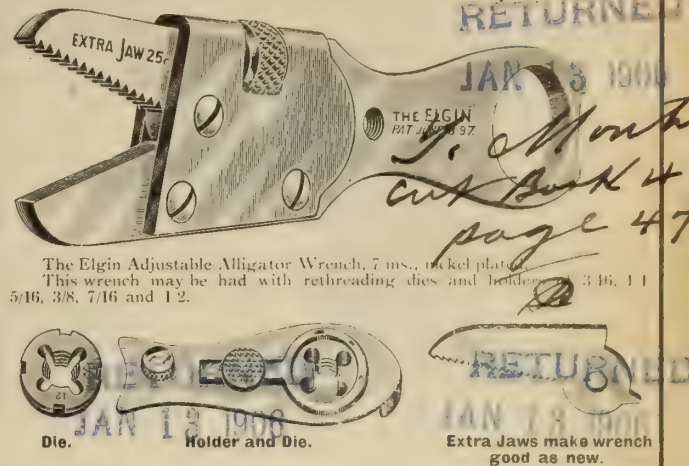 RETURNED
JAN 13 1906
EXTRA JAW 25c
THE ELGIN
PAT JUNE 8 97
cut Book 4
page 47
The Elgin Adjustable Alligator Wrench, 7 ins., nickel plated.
This wrench may be had with rethreading dies and holder 3/16, 1/4
5/16, 3/8, 7/16 and 1/2.
12
RETURNED
JAN 13 1906
JAN 13 1906
Die.
Holder and Die.
Extra Jaws make wrench
good as new.